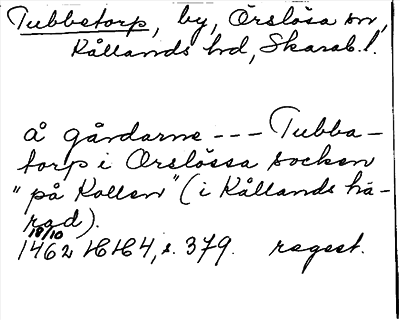 Tubbetorp, by, Örslösa sn,
Kållands hd, Skarab.l.
å gårdarne --- Tubba-
torp i Orslössa socken
"på Kollen" (i Kållands hä-
rad).
18/10
1462 HH4, s. 379. regest.